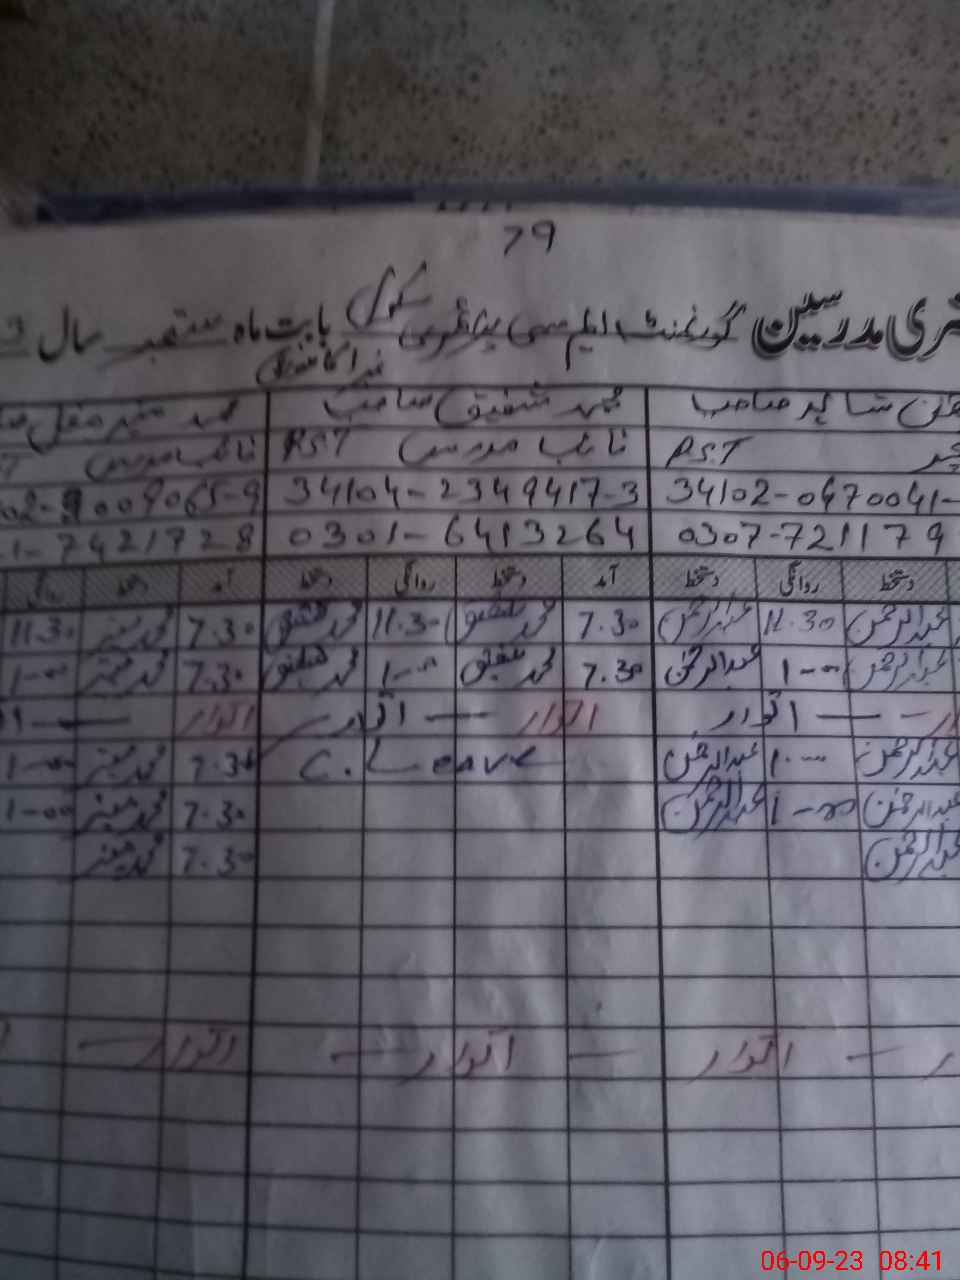 79
حاضری مدرسین گورنمنٹ ایم سی پرائمری سکول بابت ماہ ستمبر سال 3
شاہد صاحب محمد شفیق صاحب محمد منیر مغل
PST نائب مدرس PST نائب مدرس
34102-0470041- 34104-2349417-3 02-9009065-9
0307-7211179 0301-6413264 1-7421728
دستخط روانگی دستخط آمد دستخط روانگی دستخط آمد دستخط روانگی
عبدالرحمن 11.30 عبدالرحمن 7.30 محمد شفیق 11.30 محمد شفیق 7.30 محمد منیر 11.30
عبدالرحمن 1-00 عبدالرحمن 7.30 محمد شفیق 1-00 محمد شفیق 7.30 محمد منیر 1-00
اتوار — اتوار — اتوار — اتوار —
عبدالرحمن 1-00 عبدالرحمن C. Leave 7.30 محمد منیر 1-00
عبدالرحمن 1-00 عبدالرحمن 7.30 محمد منیر 1-00
عبدالرحمن 7.30 محمد منیر
— اتوار — اتوار — اتوار —
06-09-23 08:41